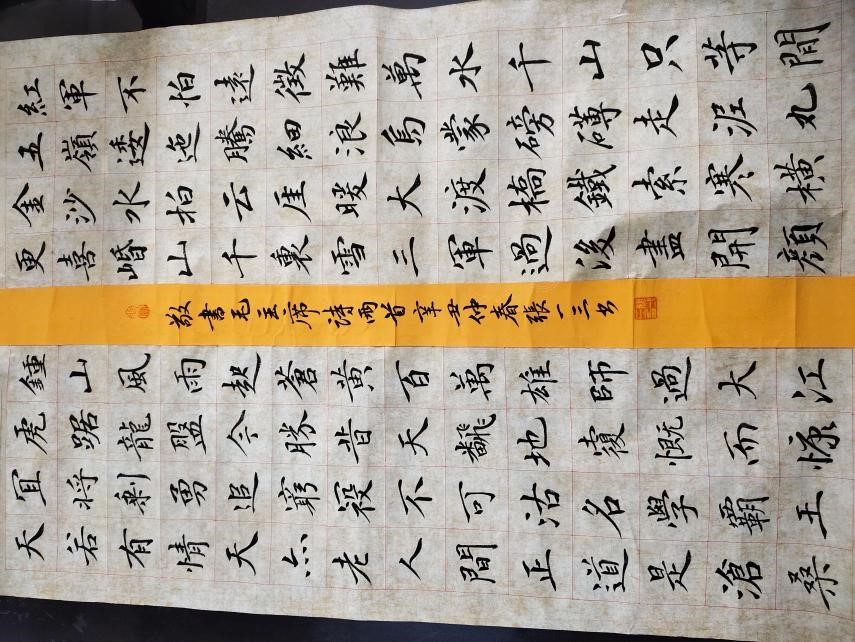 紅軍不怕遠徵難萬水千山只等閒
五嶺逶迤騰細浪烏蒙磅礴走泥丸
金沙水拍云崖暖大渡橋鐵索寒橫
更喜岷山千裏雪三軍過後盡開顏
敬書毛主席詩兩首辛丑仲春張一三書
鍾山風雨起蒼黃百萬雄師過大江
虎踞龍盤今勝昔天翻地覆慨而慷
宜將剩勇追窮寇不可沽名學霸王
天若有情天亦老人間正道是滄桑